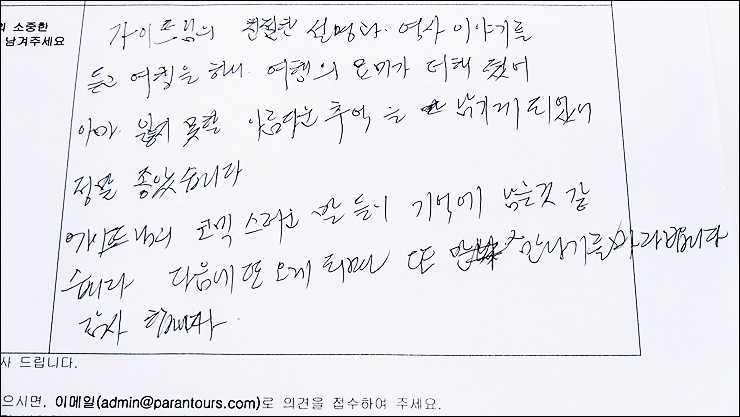 의 소중한
남겨주세요
가이드님의 친절한 설명과 역사 이야기를
듣고 여행을 하니 여행의 묘미가 더해 졌어
아마 잊지 못할 아름다운 추억을 남기게 되었어
정말 좋았습니다
가이드님의 코믹 스러운 말들이 기억에 남을것 같
습니다 다음에 또 오게 되면 또 만나기를 바라겠습니다
감사 합니다.
사 드립니다.
으시면, 이메일(admin@parantours.com)로 의견을 접수하여 주세요.